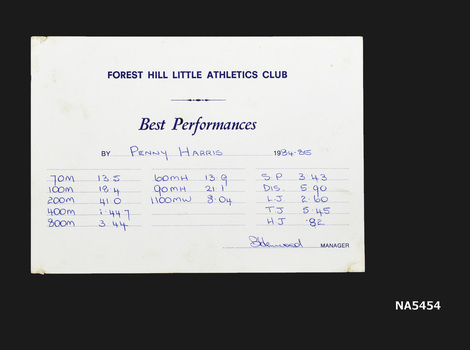 FOREST HILL LITTLE ATHLETICS CLUB
Best Performances
BY PENNY HARRIS 1984-85
70M 13.5 60MH 13.9 S.P 3.43
100M 18.4 90MH 21.1 DIS. 5.90
200M 41.0 1100MW 8.04 LJ 2.60
400M 1.447 TJ 5.45
800M 3.44 HJ .82
MANAGER
NA5454